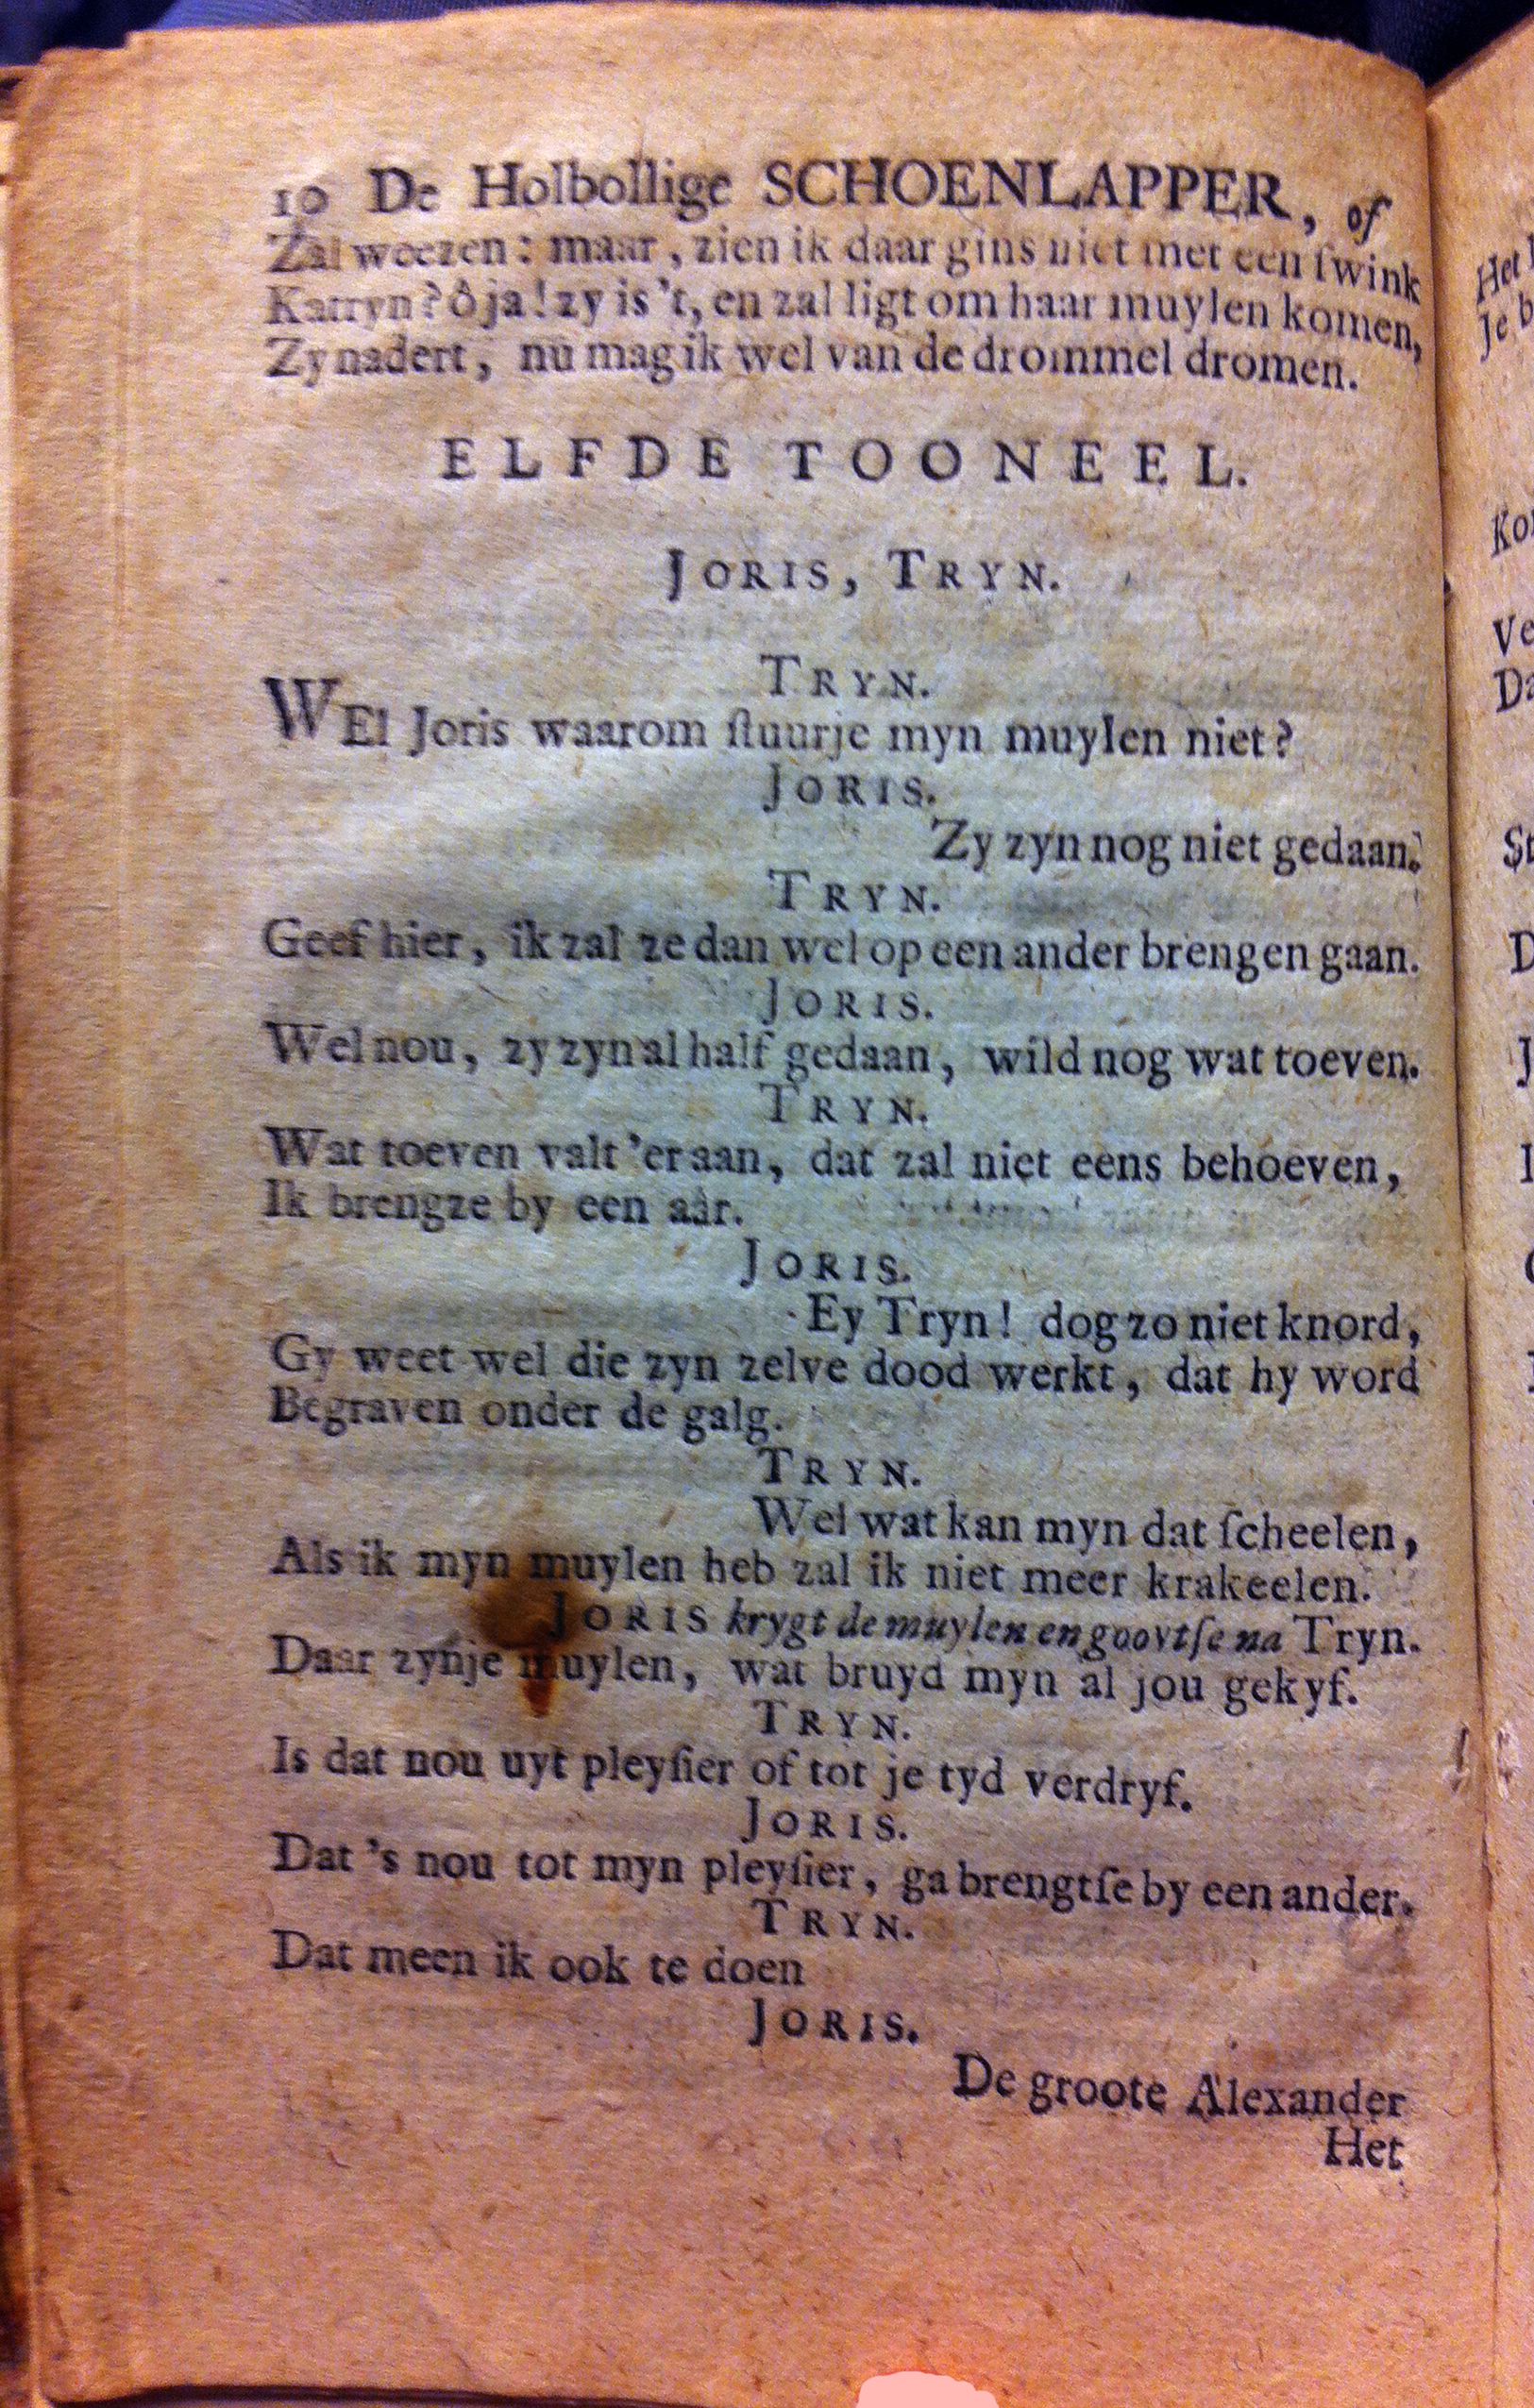 10 De Holbollige SCHOENLAPPER, of
Zal weezen: maar, zien ik daar gins niet met een ſwink
Katryn? ô ja! zy is 't, en zal ligt om haar muylen komen,
Zy nadert, nu mag ik wel van de drommel dromen.
ELFDE TOONEEL.
JORIS, TRYN.
TRYN.
WEl Joris waarom ſtuurje myn muylen niet?
JORIS.
Zy zyn nog niet gedaan.
TRYN.
Geef hier, ik zal ze dan wel op een ander brengen gaan.
JORIS.
Wel nou, zy zyn al half gedaan, wild nog wat toeven.
TRYN.
Wat toeven valt 'er aan, dat zal niet eens behoeven,
Ik brengze by een aâr.
JORIS.
Ey Tryn! dog zo niet knord,
Gy weet wel die zyn zelve dood werkt, dat hy word
Begraven onder de galg.
TRYN.
Wel wat kan myn dat ſcheelen,
Als ik myn muylen heb zal ik niet meer krakeelen.
JORIS krygt de muylen en goovtſe na Tryn.
Daar zynje muylen, wat bruyd myn al jou gekyf.
TRYN.
Is dat nou uyt pleyſier of tot je tyd verdryf.
JORIS.
Dat 's nou tot myn pleyſier, ga brengtſe by een ander.
TRYN.
Dat meen ik ook te doen
JORIS.
De groote Alexander
Het